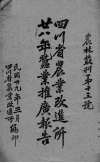 農林叢刊第十三號
四川省農業改進所
廿八年蠶業推廣報告
民國廿九年三月編印
四川省農業改進所